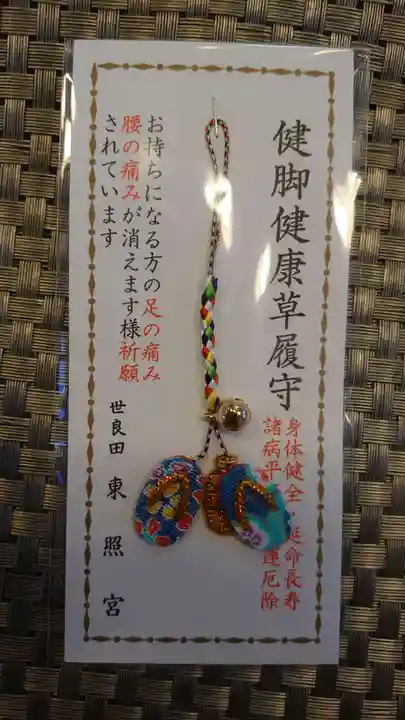 健脚健康草履守
身体健全・延命長寿
諸病平　運厄除
お持ちになる方の足の痛み
腰の痛みが消えます様祈願
されています
世良田 東照宮